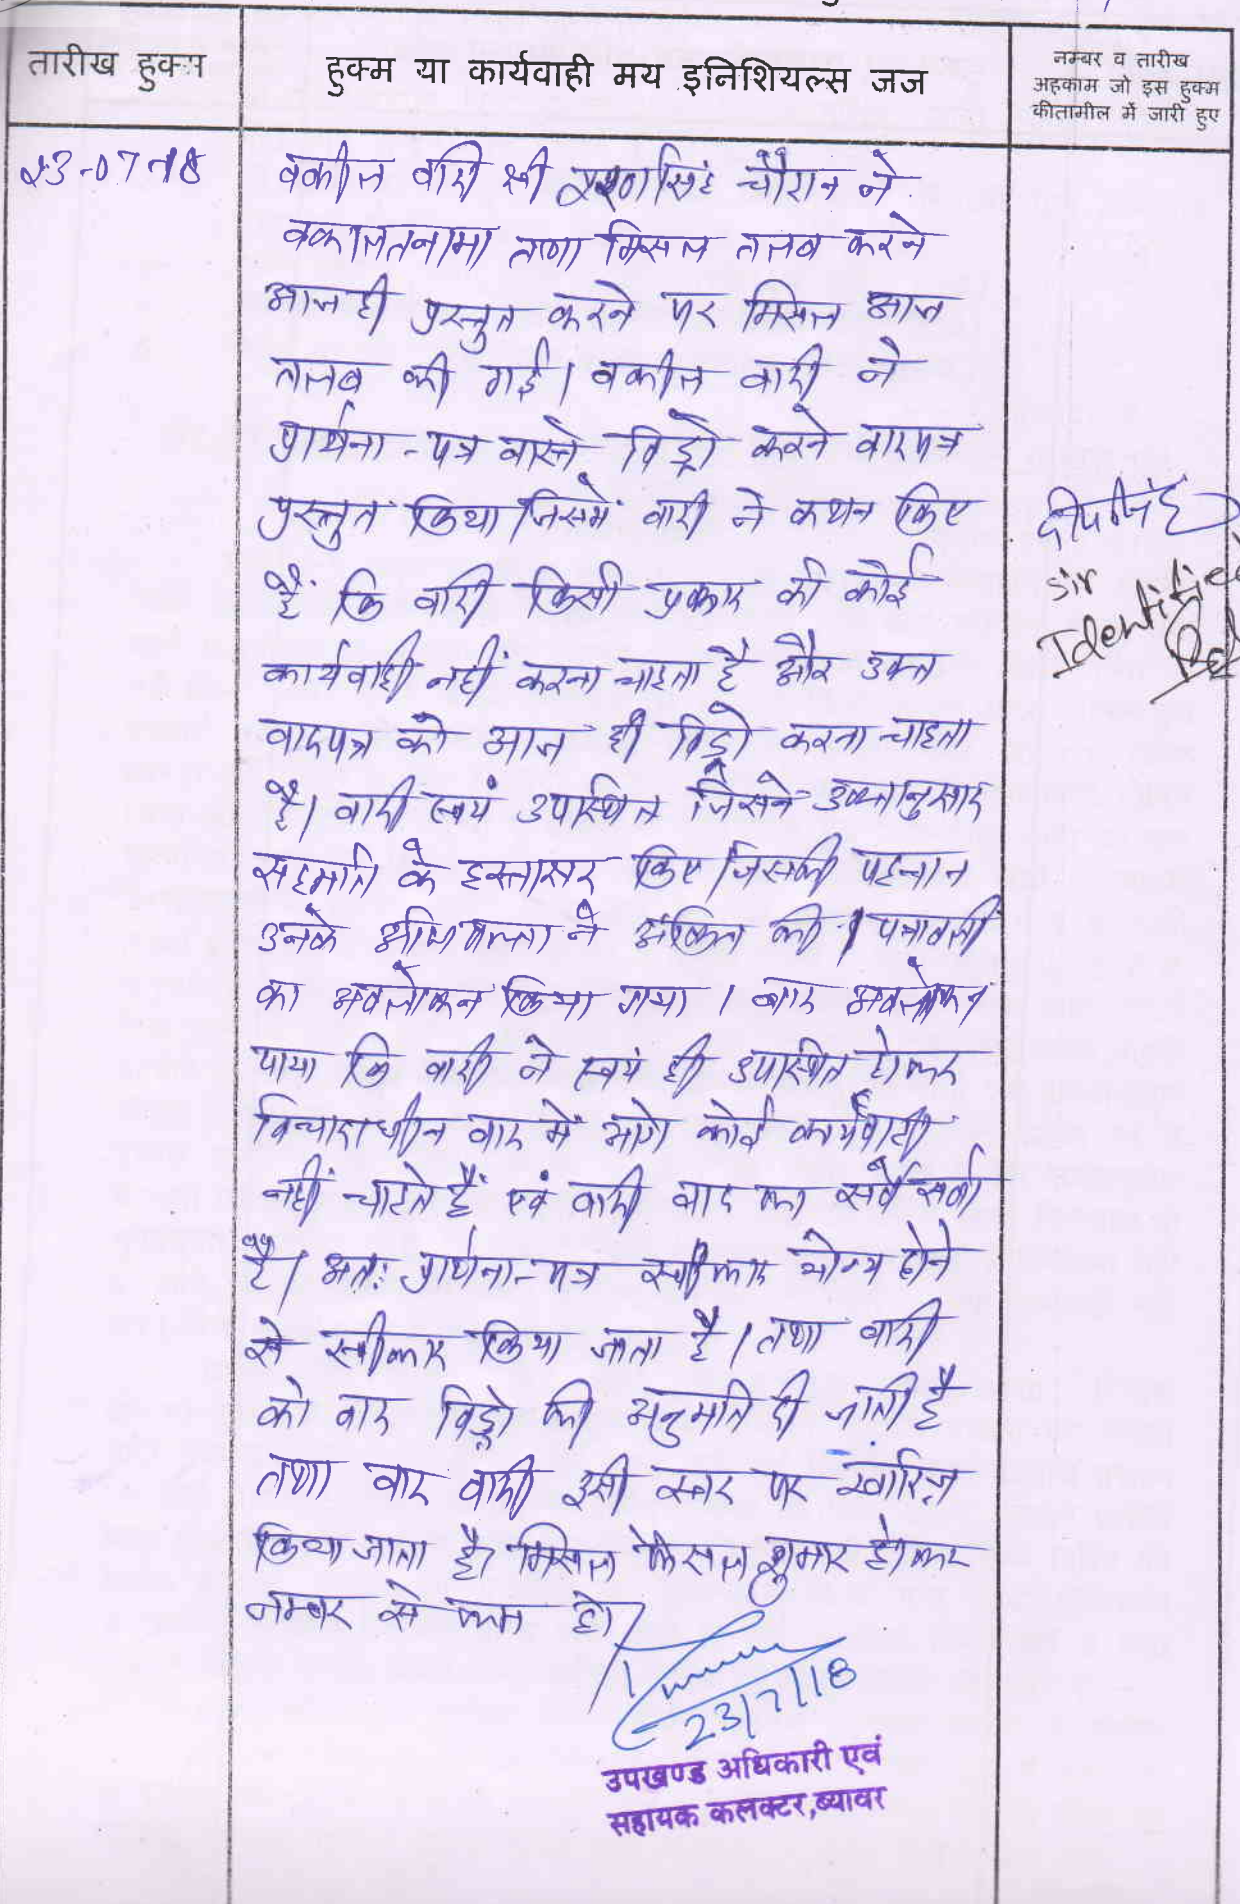 तारीख हुक्म
हुक्म या कार्यवाही मय इनिशियल्स जज
नम्बर व तारीख
अहकाम जो इस हुक्म
की तामील में जारी हुए
23-07-18
वकील वादी श्री चौहान ने
वकालतनामा तथा मिसल तलब करने
आज ही प्रस्तुत करने पर मिसल आज
तलब की गई। वकील वादी ने
प्रार्थना-पत्र वास्ते विड्रो करने वादपत्र
प्रस्तुत किया जिसमें वादी ने कथन किए
हैं कि वादी किसी प्रकार की कोई
कार्यवाही नहीं करना चाहता है और उक्त
वादपत्र को आज ही विड्रो करना चाहता
है। वादी स्वयं उपस्थित जिसने उक्तानुसार
सहमति के हस्ताक्षर किए जिसकी पहचान
उनके अभिभाषक ने अंकित की। पत्रावली
का अवलोकन किया गया। बाद अवलोकन
पाया कि वादी ने स्वयं ही उपस्थित होकर
विचाराधीन वाद में आगे कोई कार्यवाही
नहीं चाहते हैं एवं वादी वाद का सर्वे सर्वा
है। अतः प्रार्थना-पत्र स्वीकार योग्य होने
से स्वीकार किया जाता है। तथा वादी
को वाद विड्रो की अनुमति दी जाती है
तथा वाद वादी इसी स्तर पर खारिज
किया जाता है। मिसल फैसल शुमार होकर
नम्बर से कम हो।
sir
Identified
23/7/18
उपखण्ड अधिकारी एवं
सहायक कलक्टर, ब्यावर